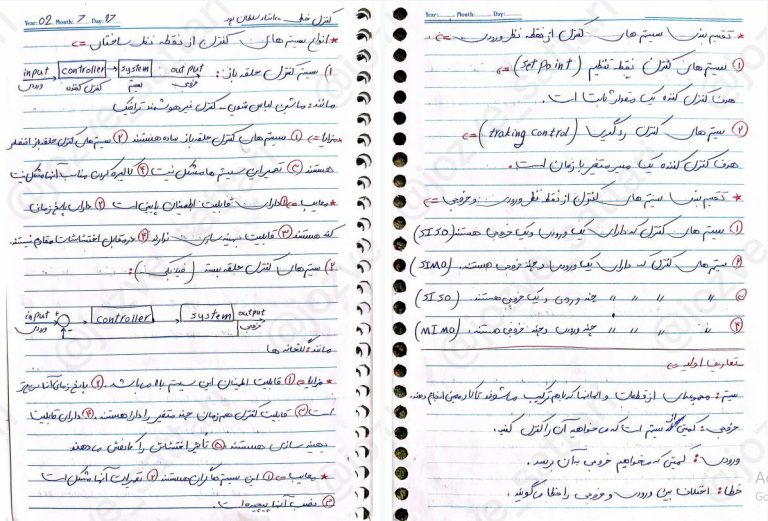 Year: Month: Day:
* تقسیم بندی سیستم های کنترل از نقطه نظر ورودی =>
① سیستم های کنترل نقطه تنظیم (set point) =>
هدف کنترل کننده یک مقدار ثابت است.
② سیستم های کنترل ردگیر (traking control) =>
هدف کنترل کننده یک مسیر متغیر با زمان است.
* تقسیم بندی سیستم های کنترل از نقطه نظر ورودی و خروجی =>
① سیستم های کنترل که دارای یک ورودی و یک خروجی هستند (SISO)
② سیستم های کنترل که دارای یک ورودی و چند خروجی هستند. (SIMO)
③ " " " " چند ورودی و یک خروجی هستند. (SISO)
④ " " " " چند ورودی و چند خروجی هستند. (MIMO)
تعاریف اولیه =>
سیستم: مجموعه ای از قطعات و المانها که با هم ترکیب میشوند تا کار معین انجام دهند.
خروجی: کمیتی از سیستم است که می خواهیم آن را کنترل کنیم.
ورودی: کمیتی که میخواهیم خروجی به آن برسد.
خطا: اختلاف بین ورودی و خروجی را خطا می گویند.
Year: 02 Month: 7 Day: 17
کنترل خطی
* انواع سیستم های کنترل از نقطه نظر ساختار =>
۱) سیستم کنترل حلقه باز:
input ورودی controller کنترل کننده system سیستم output خروجی
مانند: ماشین لباس شویی - کنترل غیر هوشمند ترافیک
* مزایا => ① سیستم های کنترل حلقه باز ساده هستند ② سیستم های کنترل حلقه باز
هستند ③ تعمیر این سیستم ها مشکل نیست ④ کالیبره کردن مناسب آنها مشکل
* معایب => ① دارای قابلیت اطمینان پایین است ② دارای پاسخ زمانی
کند هستند ③ قابلیت بهینه سازی ندارند ④ در مقابل اغتشاشات مقاوم نیستند.
۲) سیستم های کنترل حلقه بسته (فیدبک):
input ورودی + - controller system output خروجی
مانند: گلخانه ها
* مزایا => ① قابلیت اطمینان این سیستم بالا می باشد. ② پاسخ زمانی آنها سریع تر
است ③ قابلیت کنترل هم زمان چند متغیر را دارا هستند. ④ دارای قابلیت
بهینه سازی هستند. ⑤ تأثیر اغتشاش را کاهش می دهند
* معایب => ① این سیستم ها گران هستند ② تعمیرات آنها مشکل است
③ نصب آنها پیچیده است.